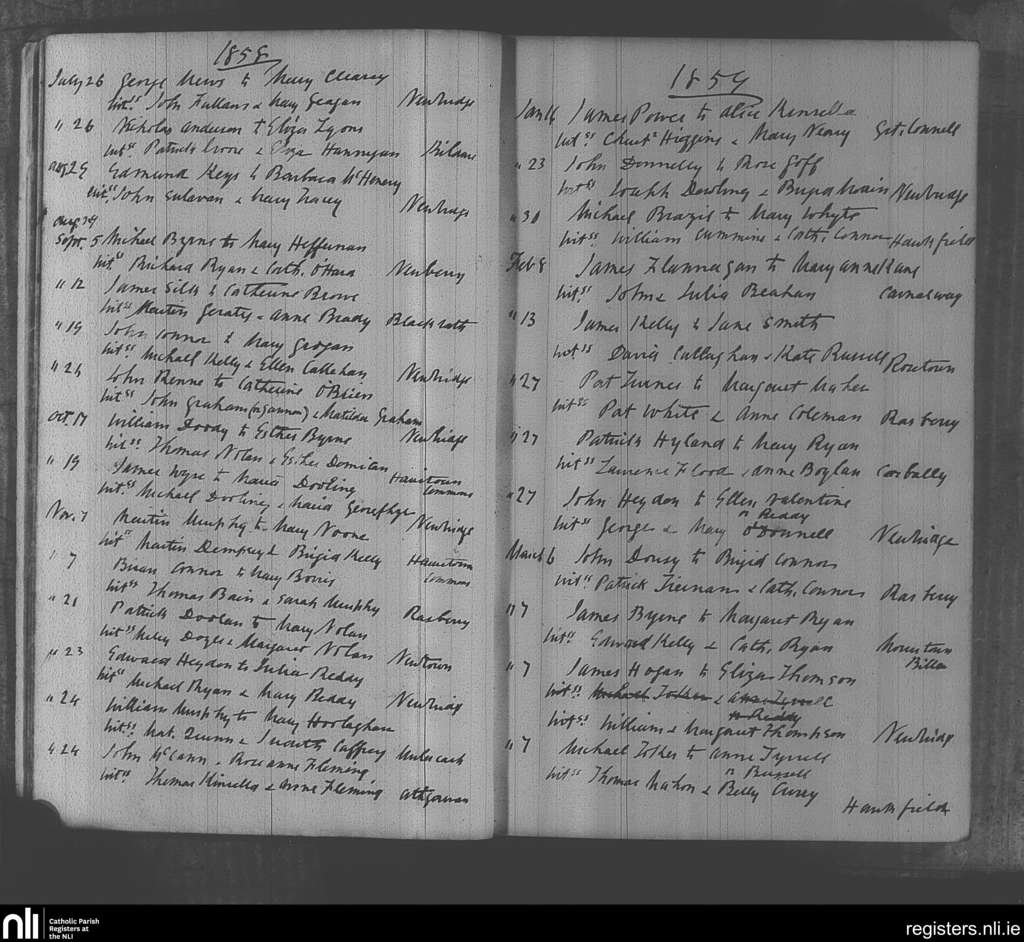 1858
July 26 George Mews to Mary Clearey
Wit.ss John Fullam & Mary Geagan Newbridge
" 26 Nicholas Anderson to Eliza Lyons
Wit.ss Patrick & Eliza Hannegan Kildare
Aug 29 Edmund Keys to Barbara McHenery
Wit.ss John Sulavan & Mary Tracey Newbridge
Aug. 29
Sept. 5 Michael Byrne to Mary Heffernan
Wit.ss Richard Ryan & Cath. O'Hara Newberry
" 12 James Silk to Catherine Browe
Wit.ss Martin Geraty & Anne Brady Blackrath
" 19 John Connor to Mary Grogan
Wit.ss Michael Kelly & Ellen Callehan Newbridge
" 26 John Renne to Catherine O'Brien
Wit.ss John Graham & Matilda Graham Newbridge
Oct. 17 William Doody to Esther Byrne
Wit.ss Thomas Nolan & Esther Domican Hawetown Commons
" 19 James Wyse to Maria Dooling
Wit.ss Michael Dooling & Maria Newbridge
Nov. 7 Martin Murphy to Mary Noone
Wit.ss Martin Dempsey & Brigid Kelly Hawetown Commons
" 7 Brian Connor to Mary Borris
Wit.ss Thomas Bain & Sarah Murphy Rasberry
" 21 Patrick Doolan to Mary Nolan
Wit.ss Miley Doyle & Margaret Nolan Newtown
" 23 Edward Heydon to Julia Reddy
Wit.ss Michael Ryan & Mary Reddy Newbridge
" 24 William Murphy to Mary Hoolaghan
Wit.ss Mat. Quinn & Judith Caffrey
" 24 John McCann & Roseanne Fleming
Wit.ss Thomas Kinsella & Anne Fleming Athgarvan
1859
Jan 16 James Power to Alice Kinsella
Wit.ss Higgins & Mary Neavy Gt. Connell
" 23 John Donnelly to Rose Goff
Wit.ss Joseph Dowling & Brigid Newbridge
" 30 Michael Brazil to Mary Whyte
Wit.ss William Cummins & Cath. Connor Hawkfield
Feb 8 James Flannagan to Mary Anne Kane
Wit.ss John & Julia Beahan Carnalway
" 13 James Kelly to Jane Smith
Wit.ss David Callaghan & Kate Russell Rosetown
" 27 Pat Turner to Margaret Maher
Wit.ss Pat White & Anne Coleman Rasberry
" 27 Patrick Hyland to Mary Ryan
Wit.ss Laurence Flood & Anne Boylan Corbally
" 27 John Heydon to Ellen Valentine
n Reddy
Wit.ss George & Mary O'Donnell Newbridge
March 6 John Dousy to Brigid Connors
Wit.ss Patrick Tiernan & Cath. Connors Rasberry
" 7 James Byrne to Margaret Ryan
Wit.ss Edward Kelly & Cath. Ryan Mooretown Biller
" 7 James Hogan to Eliza Thomson
Wit.ss Michael Tolker & Anne Tyrrell
n Reddy
Wit.ss William & Margaret Thompson Newbridge
" 7 Michael Tolker to Anne Tyrrell
n Russell
Wit.ss Thomas Mahon & Betty Cusey
Hawkfield
nli Catholic Parish
Registers at
the NLI
registers.nli.ie